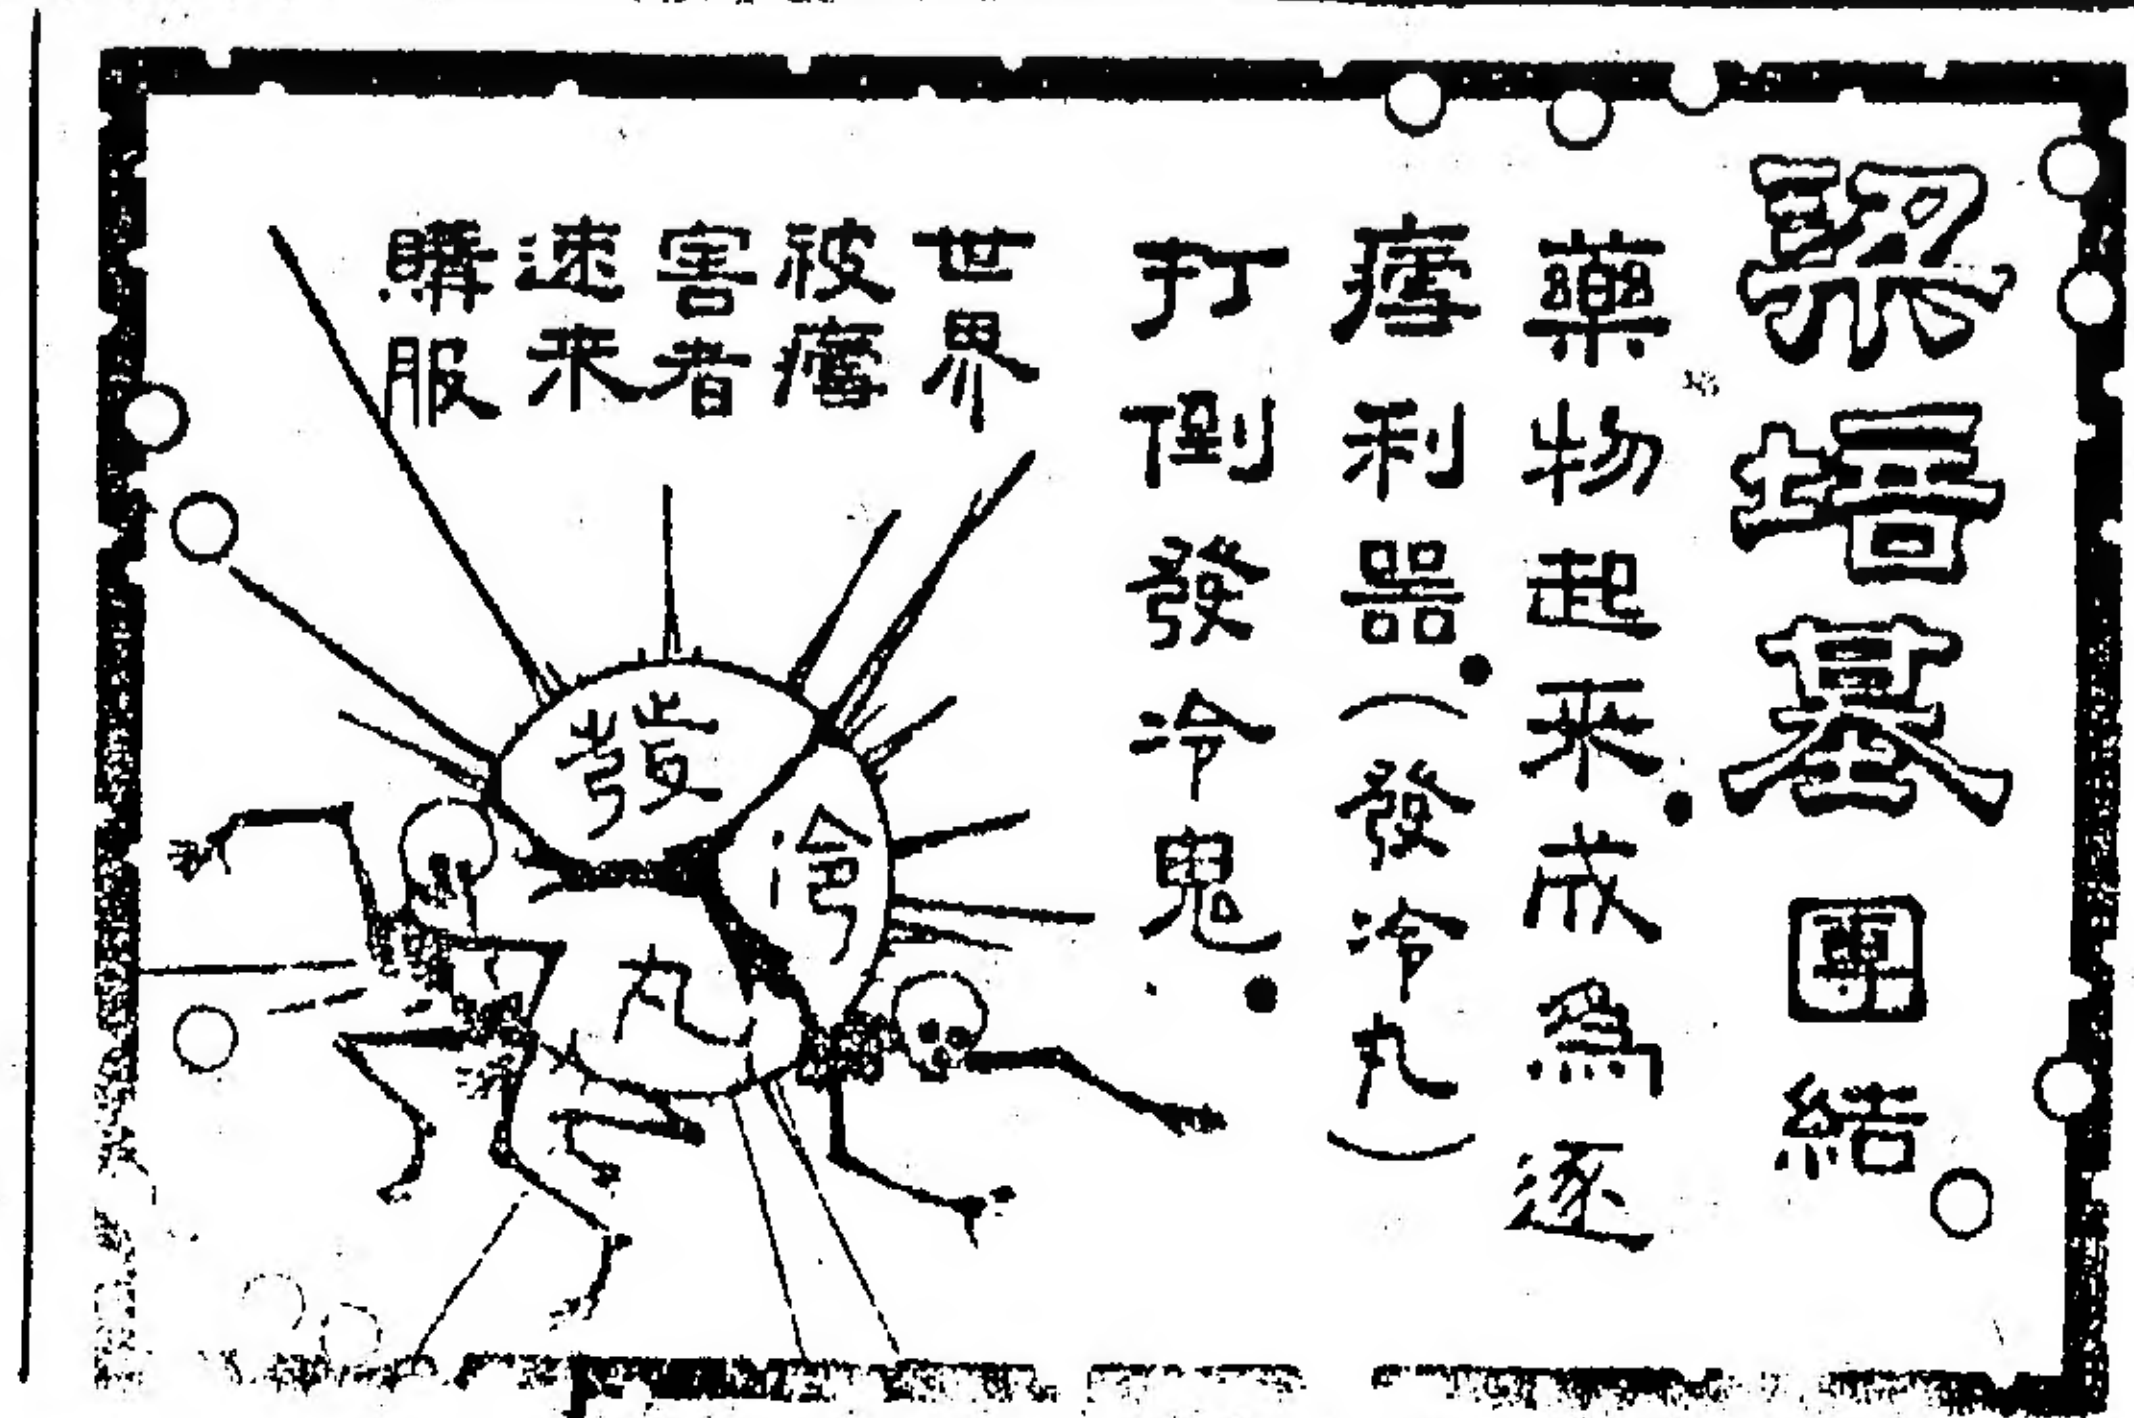 梁培基團結
藥物起来成為逐
瘧利器(發冷丸)
打倒發冷鬼
世界
被瘧
害者
速来
購服
發
冷
丸